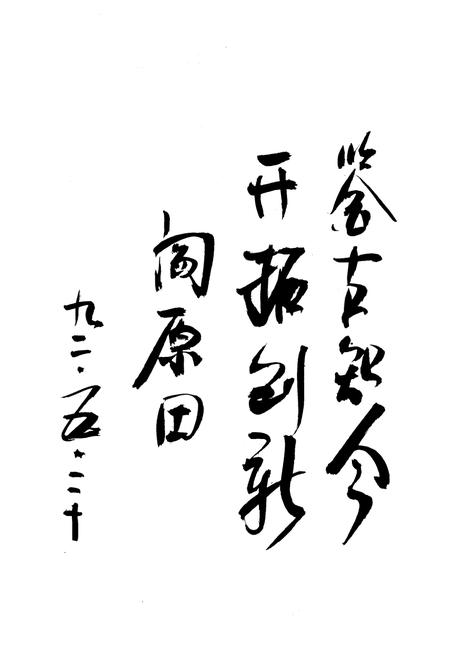 鉴古知今
开拓创新
阎原田
九二.五.二十